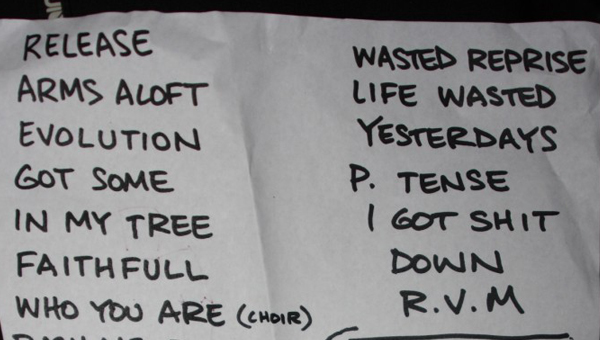 RELEASE
ARMS ALOFT
EVOLUTION
GOT SOME
IN MY TREE
FAITHFULL
WHO YOU ARE (CHOIR)
WASTED REPRISE
LIFE WASTED
YESTERDAYS
P. TENSE
I GOT SHIT
DOWN
R.V.M